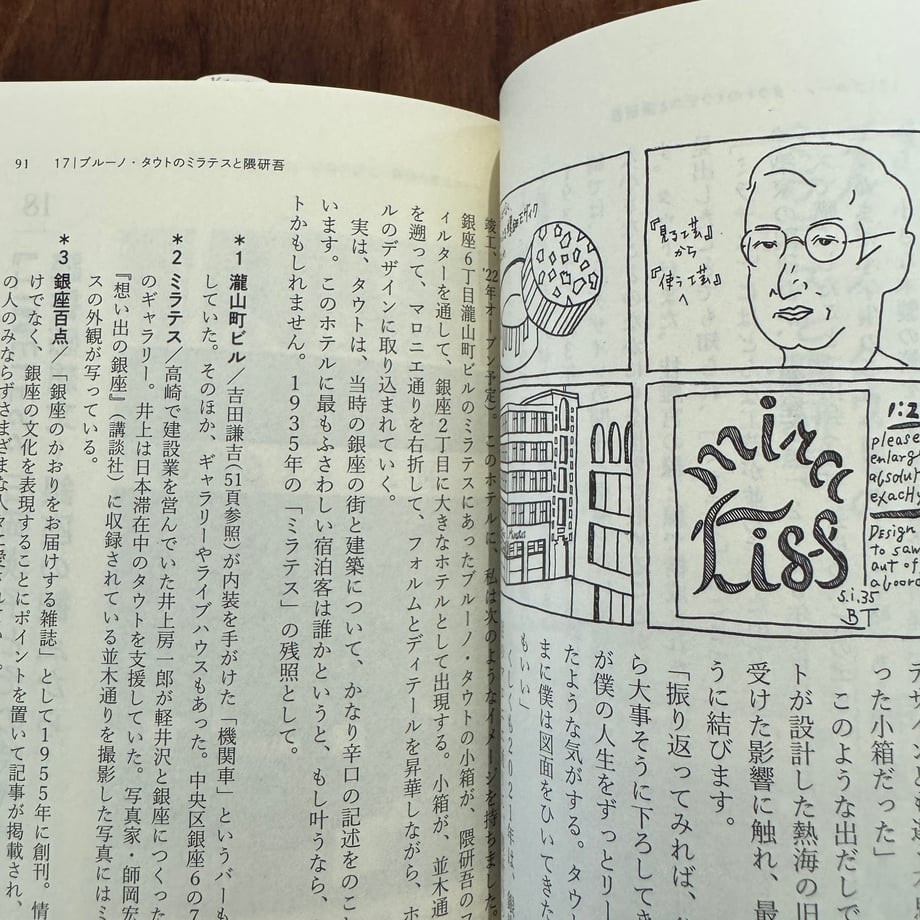 『見る工芸』
から
『使う工芸』
へ
mira
tiss
1:2
please
enlarg
absolut
exactly
Design
to saw
out of
a board
5.i.35
BT
った小箱だった」
このような出だしで
トが設計した熱海の旧
受けた影響に触れ、最
うに結びます。
「振り返ってみれば、
ら大事そうに下ろしてき
が僕の人生をずっとリー
たような気がする。タウ
まに僕は図面をひいてきた
もいい」
くしくも2021年は、
91 17|ブルーノ・タウトのミラテスと隈研吾
竣工、'22年オープン予定)。このホテルに、私は次のようなイメージを持ちました。
銀座6丁目瀧山町ビルのミラテスにあったブルーノ・タウトの小箱が、隈研吾のフ
ィルターを通して、銀座2丁目に大きなホテルとして出現する。小箱が、並木通
を遡って、マロニエ通りを右折して、フォルムとディテールを昇華しながら、ホ
ルのデザインに取り込まれていく。
実は、タウトは、当時の銀座の街と建築について、かなり辛口の記述をのこ
います。このホテルに最もふさわしい宿泊客は誰かというと、もし叶うなら、
トかもしれません。1935年の「ミラテス」の残照として。
*1 瀧山町ビル/吉田謙吉(51頁参照)が内装を手がけた「機関車」というバーも
していた。そのほか、ギャラリーやライブハウスもあった。中央区銀座6の7
*2 ミラテス/高崎で建設業を営んでいた井上房一郎が軽井沢と銀座につくった
のギャラリー。井上は日本滞在中のタウトを支援していた。写真家・師岡宏
『想い出の銀座』(講談社)に収録されている並木通りを撮影した写真にはミ
スの外観が写っている。
*3 銀座百点/「銀座のかおりをお届けする雑誌」として1955年に創刊。情
けでなく、銀座の文化を表現することにポイントを置いて記事が掲載され、
の人のみならずさまざまな人々に愛されてい